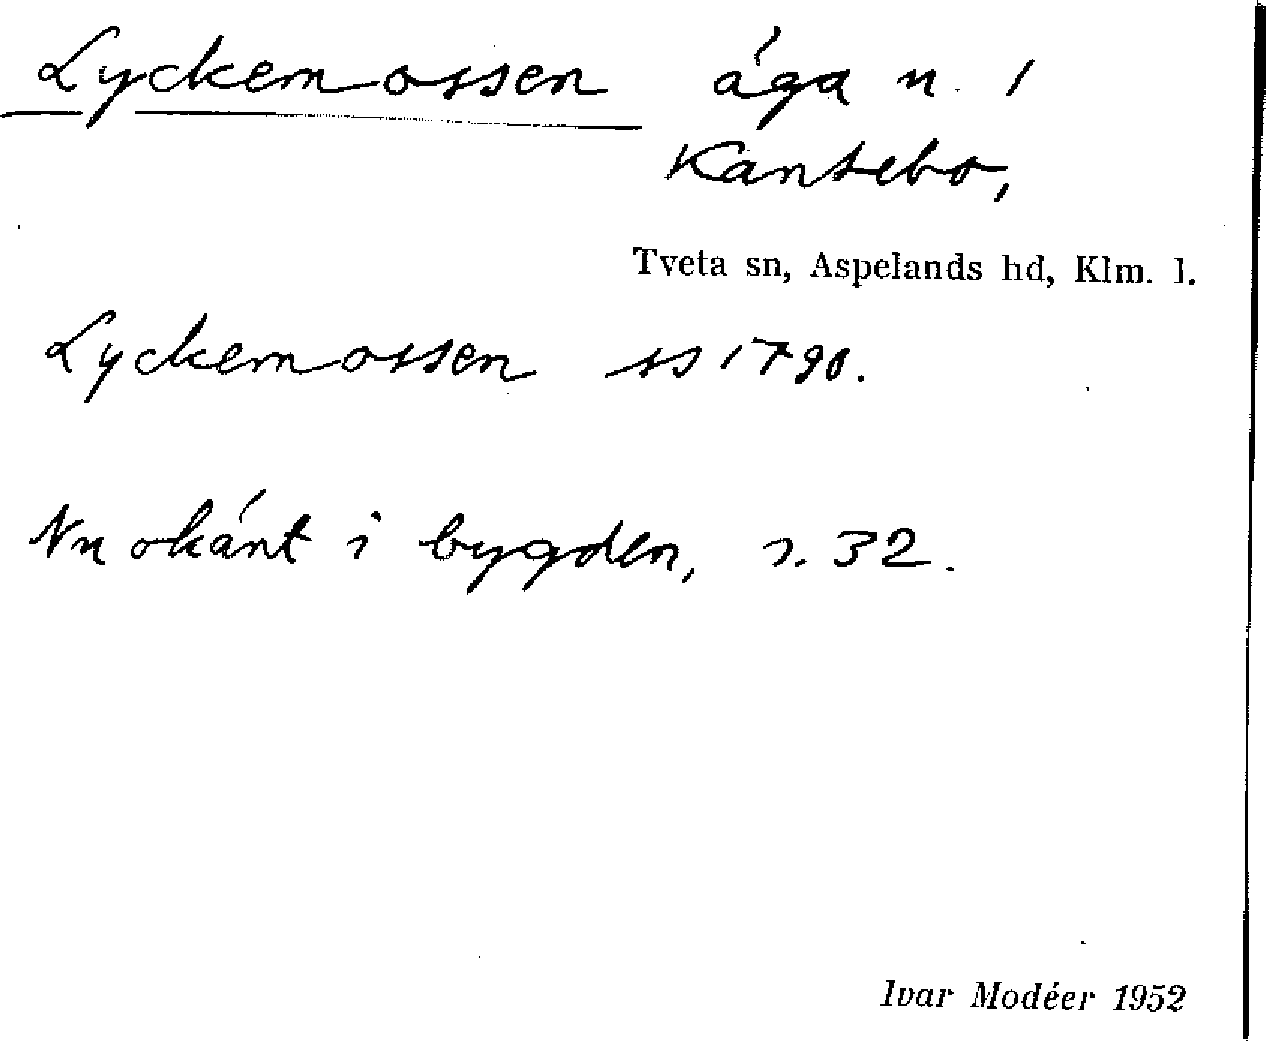 Lyckemossen äga n. 1
Kantebo,
Tveta sn, Aspelands hd, Klm. l.
Lyckemossen ss 1790.
Nu okänt i bygden, s. 32.
Ivar Modéer 1952